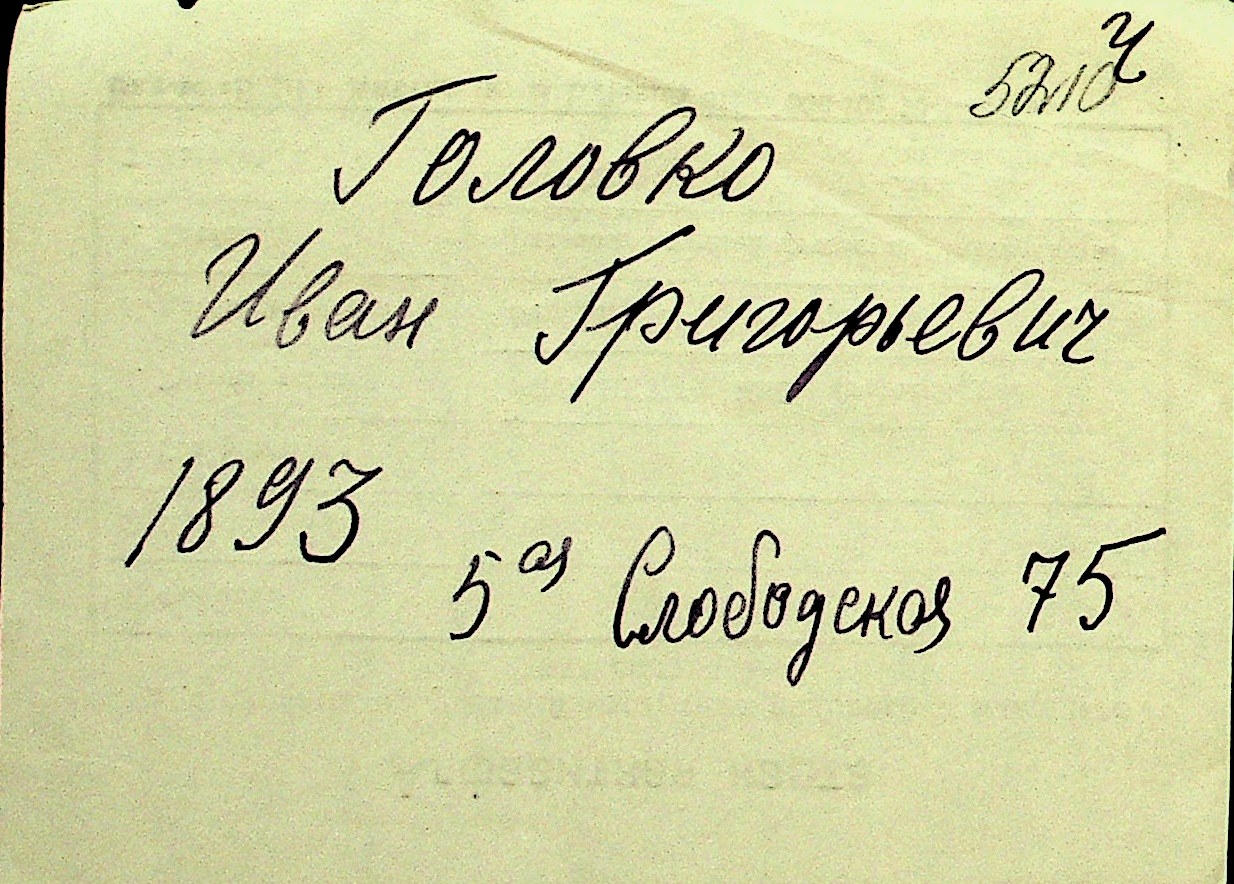 5210 ч
Головко
Иван Григорьевич
1893
5ая Слободская 75